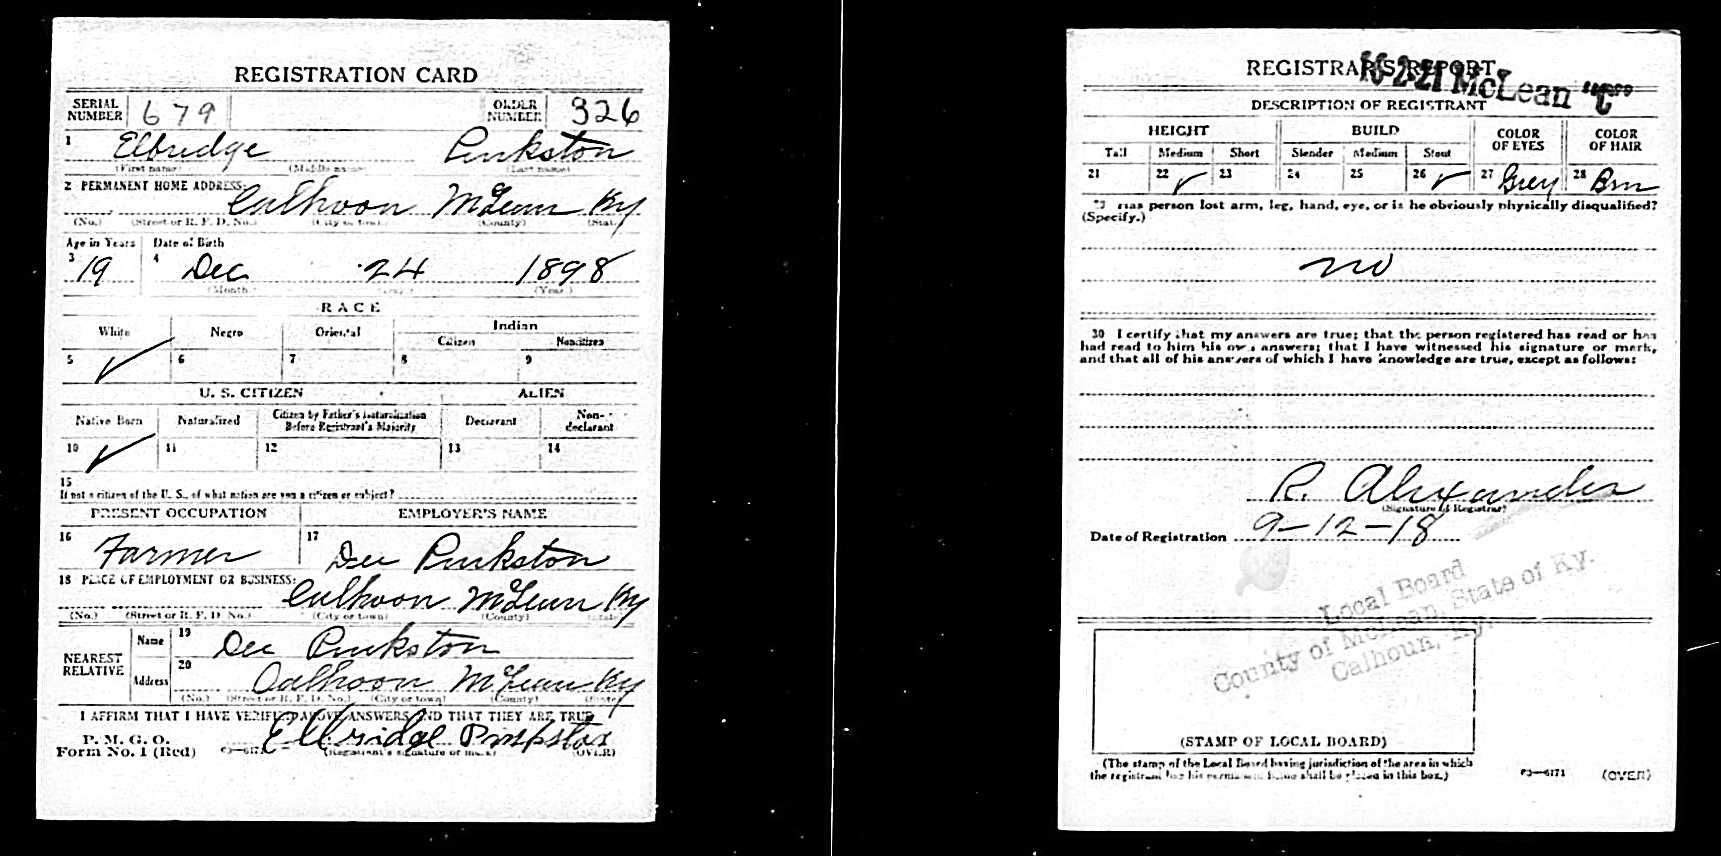 REGISTRATION CARD
SERIAL NUMBER 679 ORDER NUMBER 326
1 Elbridge Pinkston
(First name) (Middle name) (Last name)
2 PERMANENT HOME ADDRESS:
Calhoon McLean Ky
(No.) (Street or R. F. D. No.) (City or town) (County) (State)
Age in Years Date of Birth
3 19 4 Dec 24 1898
(Month) (Day) (Year)
RACE
White Negro Oriental Indian
Citizen Noncitizen
5 ✓ 6 7 8 9
U. S. CITIZEN ALIEN
Native Born Naturalized Citizen by Father's Naturalization Before Registrant's Majority Declarant Non-declarant
10 ✓ 11 12 13 14
15
If not a citizen of the U. S., of what nation are you a citizen or subject?
PRESENT OCCUPATION EMPLOYER'S NAME
16 Farmer 17 Dee Pinkston
18 PLACE OF EMPLOYMENT OR BUSINESS:
Calhoon McLean Ky
(No.) (Street or R. F. D. No.) (City or town) (County) (State)
NEAREST RELATIVE Name 19 Dee Pinkston
Address 20 Calhoon McLean Ky
(No.) (Street or R. F. D. No.) (City or town) (County) (State)
I AFFIRM THAT I HAVE VERIFIED ABOVE ANSWERS AND THAT THEY ARE TRUE
P. M. G. O.
Form No. 1 (Red) 03—6171 Elbridge Pinkston
(Registrant's signature or mark) (OVER)
REGISTRAR'S REPORT
16-2-21 McLean "C"
DESCRIPTION OF REGISTRANT
HEIGHT BUILD COLOR OF EYES COLOR OF HAIR
Tall Medium Short Slender Medium Stout
21 22 ✓ 23 24 25 26 ✓ 27 Grey 28 Brn
29 Has person lost arm, leg, hand, eye, or is he obviously physically disqualified?
(Specify.)
no
30 I certify that my answers are true; that the person registered has read or has
had read to him his own answers; that I have witnessed his signature or mark,
and that all of his answers of which I have knowledge are true, except as follows:
R. Alexander
(Signature of Registrar)
Date of Registration 9-12-18
Local Board
County of McLean, State of Ky.
Calhoun, Ky.
(STAMP OF LOCAL BOARD)
(The stamp of the Local Board having jurisdiction of the area in which
the registrant has his permanent home shall be placed in this box.)
03—6171 (OVER)